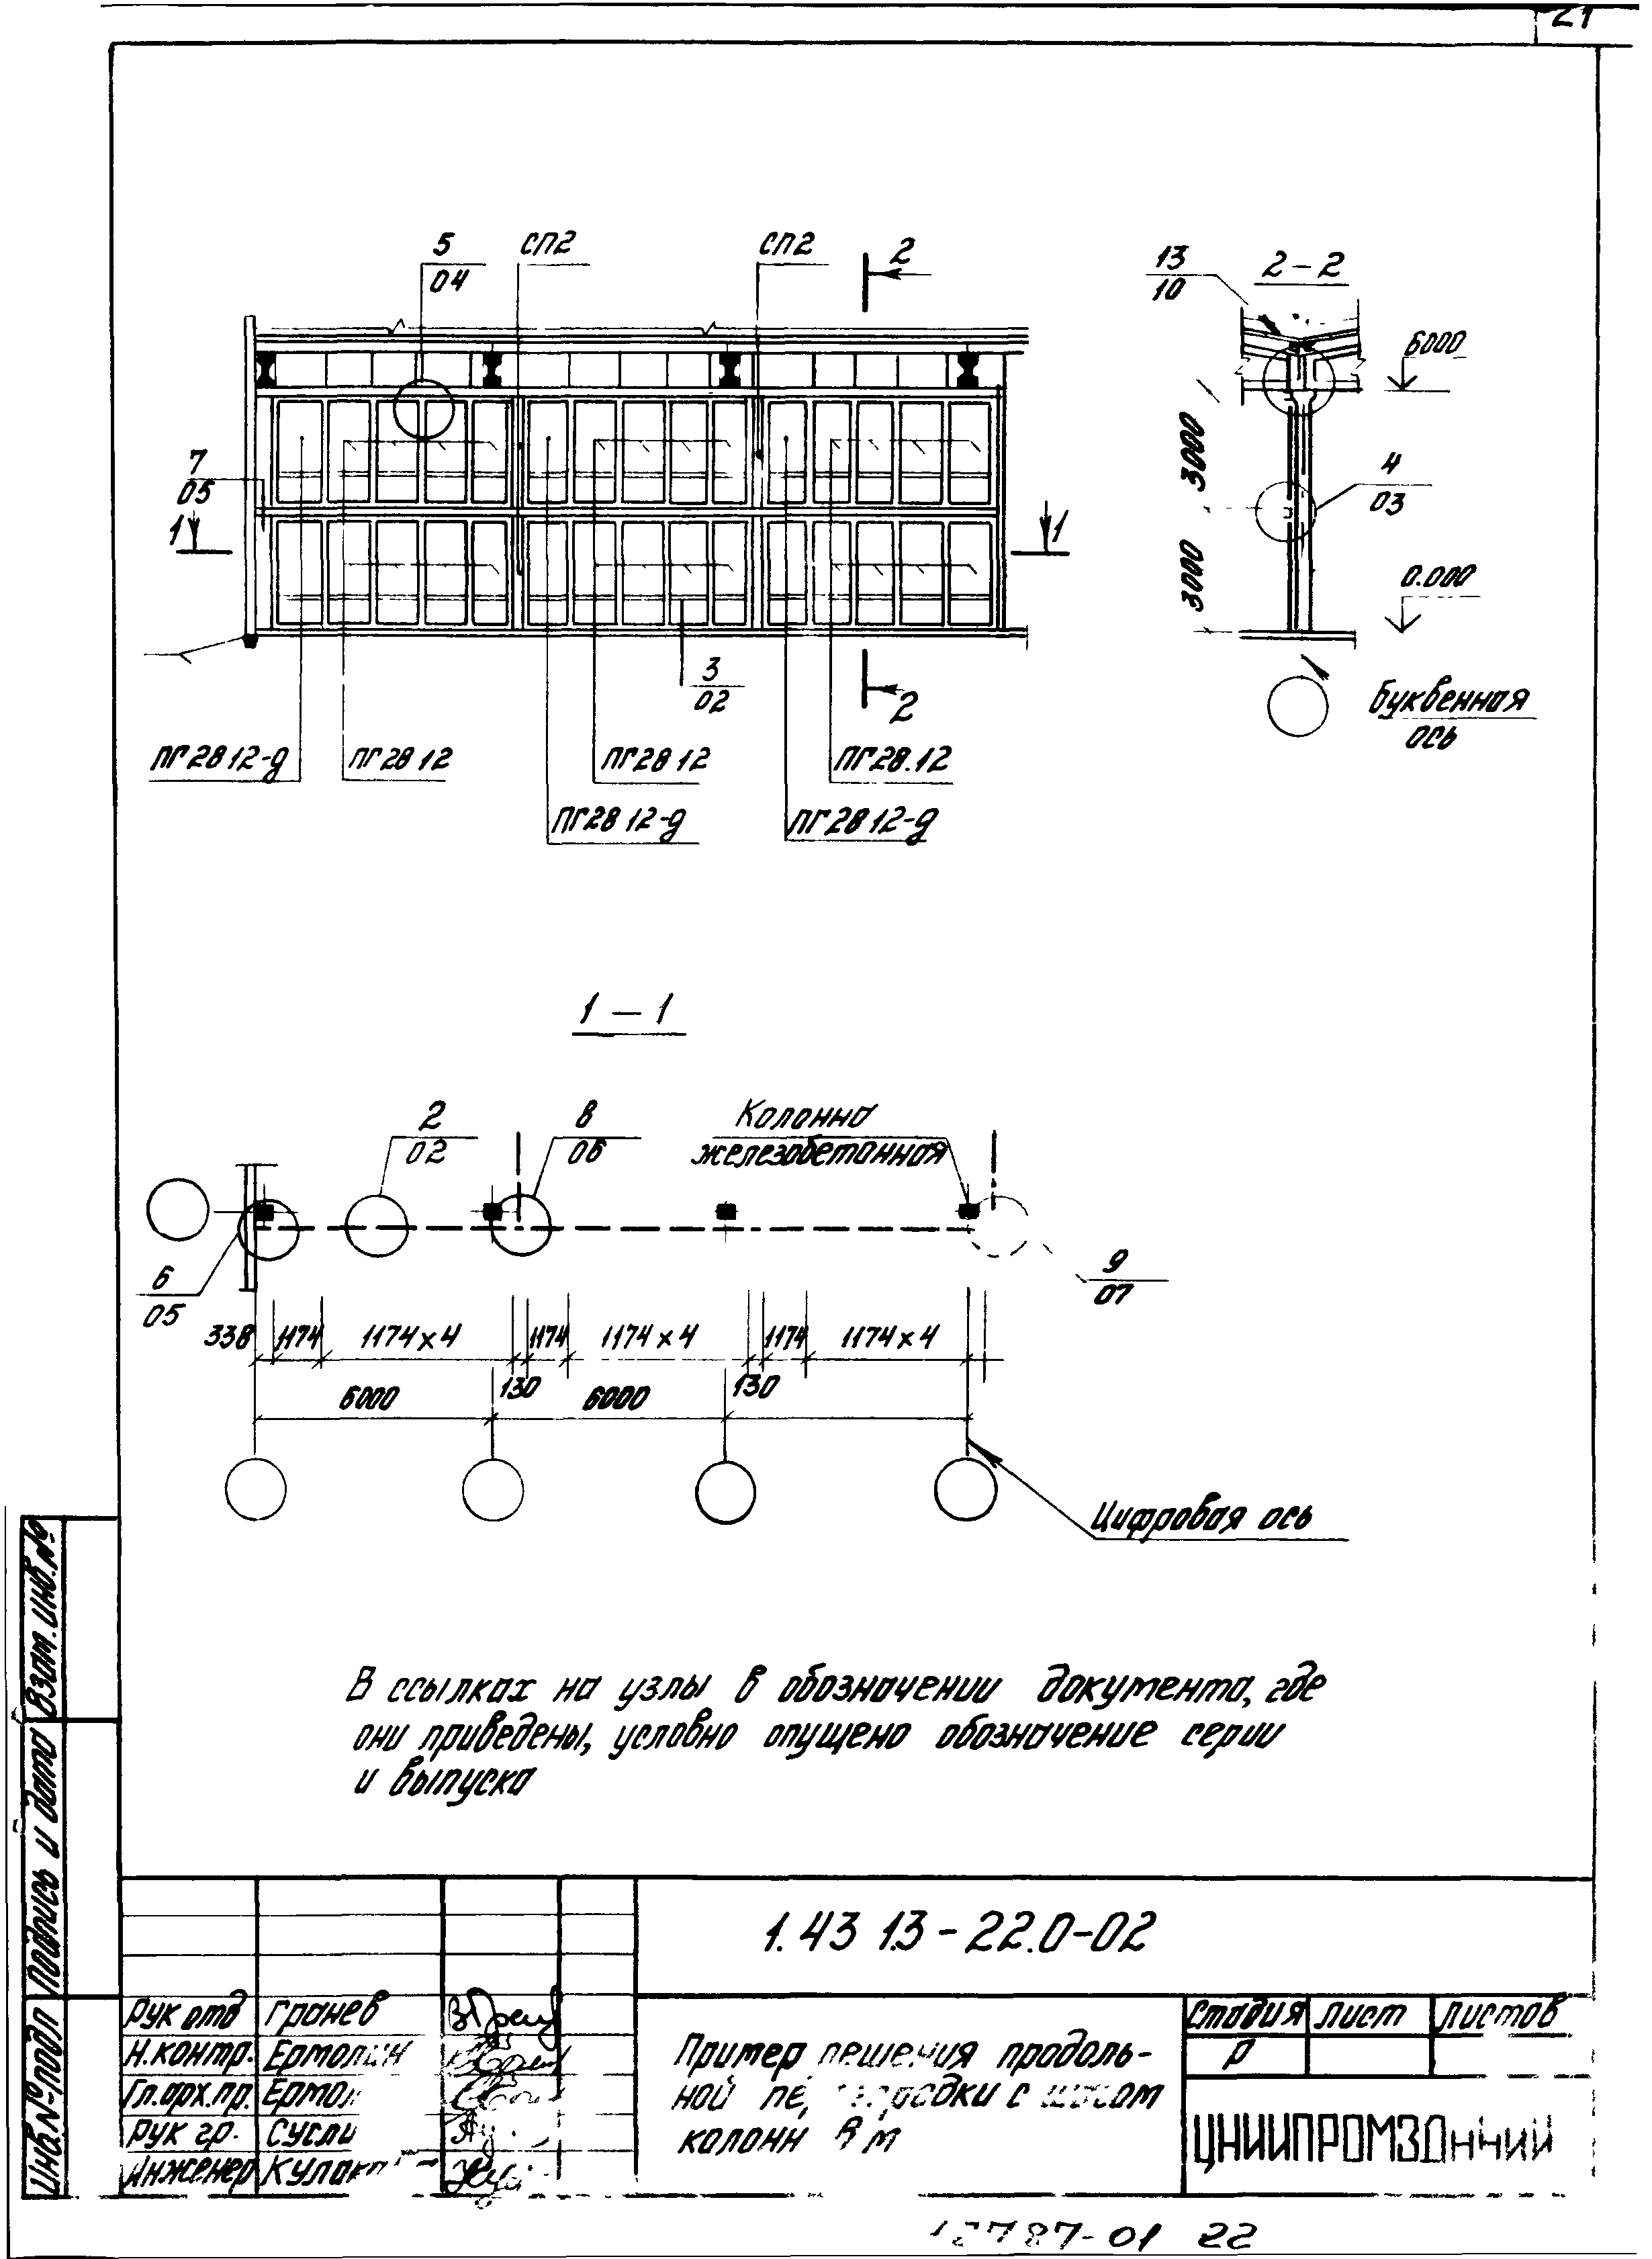 21
5
04
СП2
СП2
2
13
10
2-2
6000
7
05
1
1
3000
4
03
3000
0.000
3
02
2
Буквенная
ось
ПГ28 12-д
ПГ28 12
ПГ28 12
ПГ28.12
ПГ28 12-д
ПГ28 12-д
1-1
2
02
8
06
Колонна
железобетонная
6
05
9
07
338
1174
1174×4
1174
1174×4
1174
1174×4
6000
130
6000
130
Цифровая ось
В ссылках на узлы в обозначении документа, где
они приведены, условно опущено обозначение серии
и выпуска
Взам. инв. №
Подпись и дата
Инв. № подл
1.43 1.3-22.0-02
Рук отд Гранев
Н. контр. Ермолин
Гл. арх. пр.
Рук гр.
Инженер
Пример решения продоль-
ной перегородки с шагом
колонн м
Стадия лист листов
Р
ЦНИИПРОМЗДАНИЙ
87-01 22